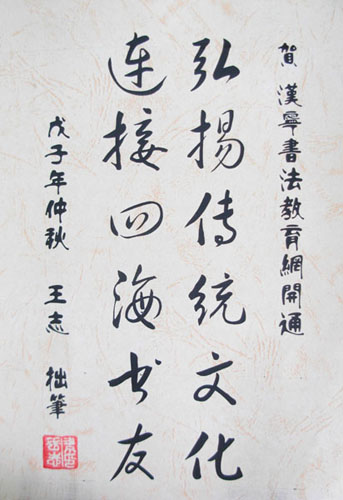 賀 漢寧書法教育網開通
弘揚傳統文化
連接四海书友
戊子年仲秋 王志 拙筆